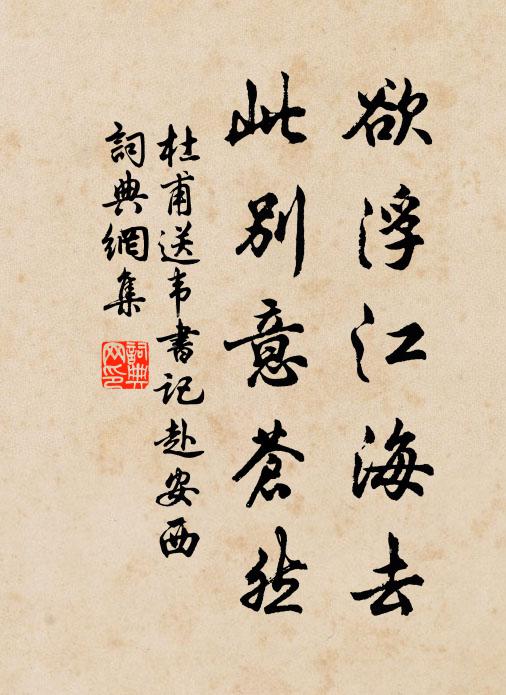 欲浮江海去
此别意蒼然
杜甫送韦書记赴安西
詞典網集
詞典网印